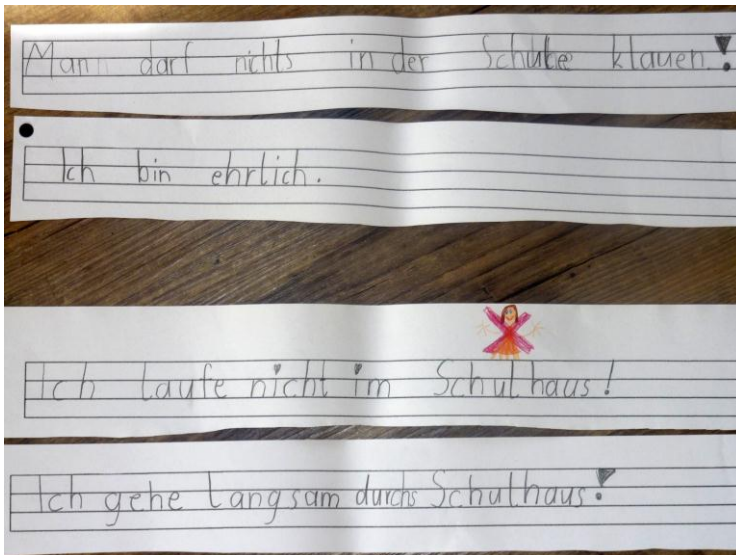 Mann darf nichts in der Schule klauen!
Ich bin ehrlich.
Ich laufe nicht im Schulhaus!
Ich gehe langsam durchs Schulhaus!